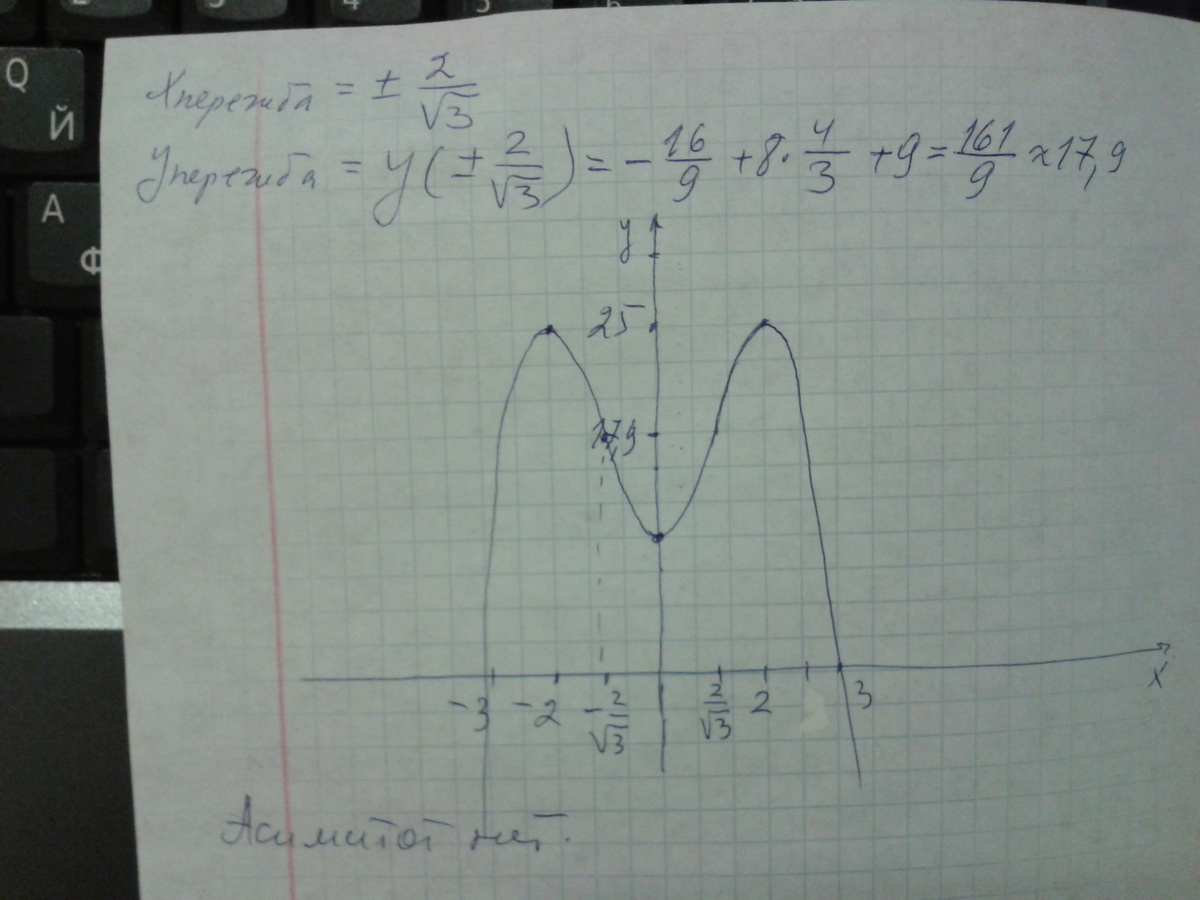 Q
Й
A
Ф
2
3
4
5
6
7
Xперегиба = ± 2/√3
Yперегиба = y(± 2/√3) = - 16/9 + 8· 4/3 + 9 = 161/9 ≈ 17,9
y
25
17,9
-3 -2 - 2/√3 2/√3 2 3
x
Асимптот нет.